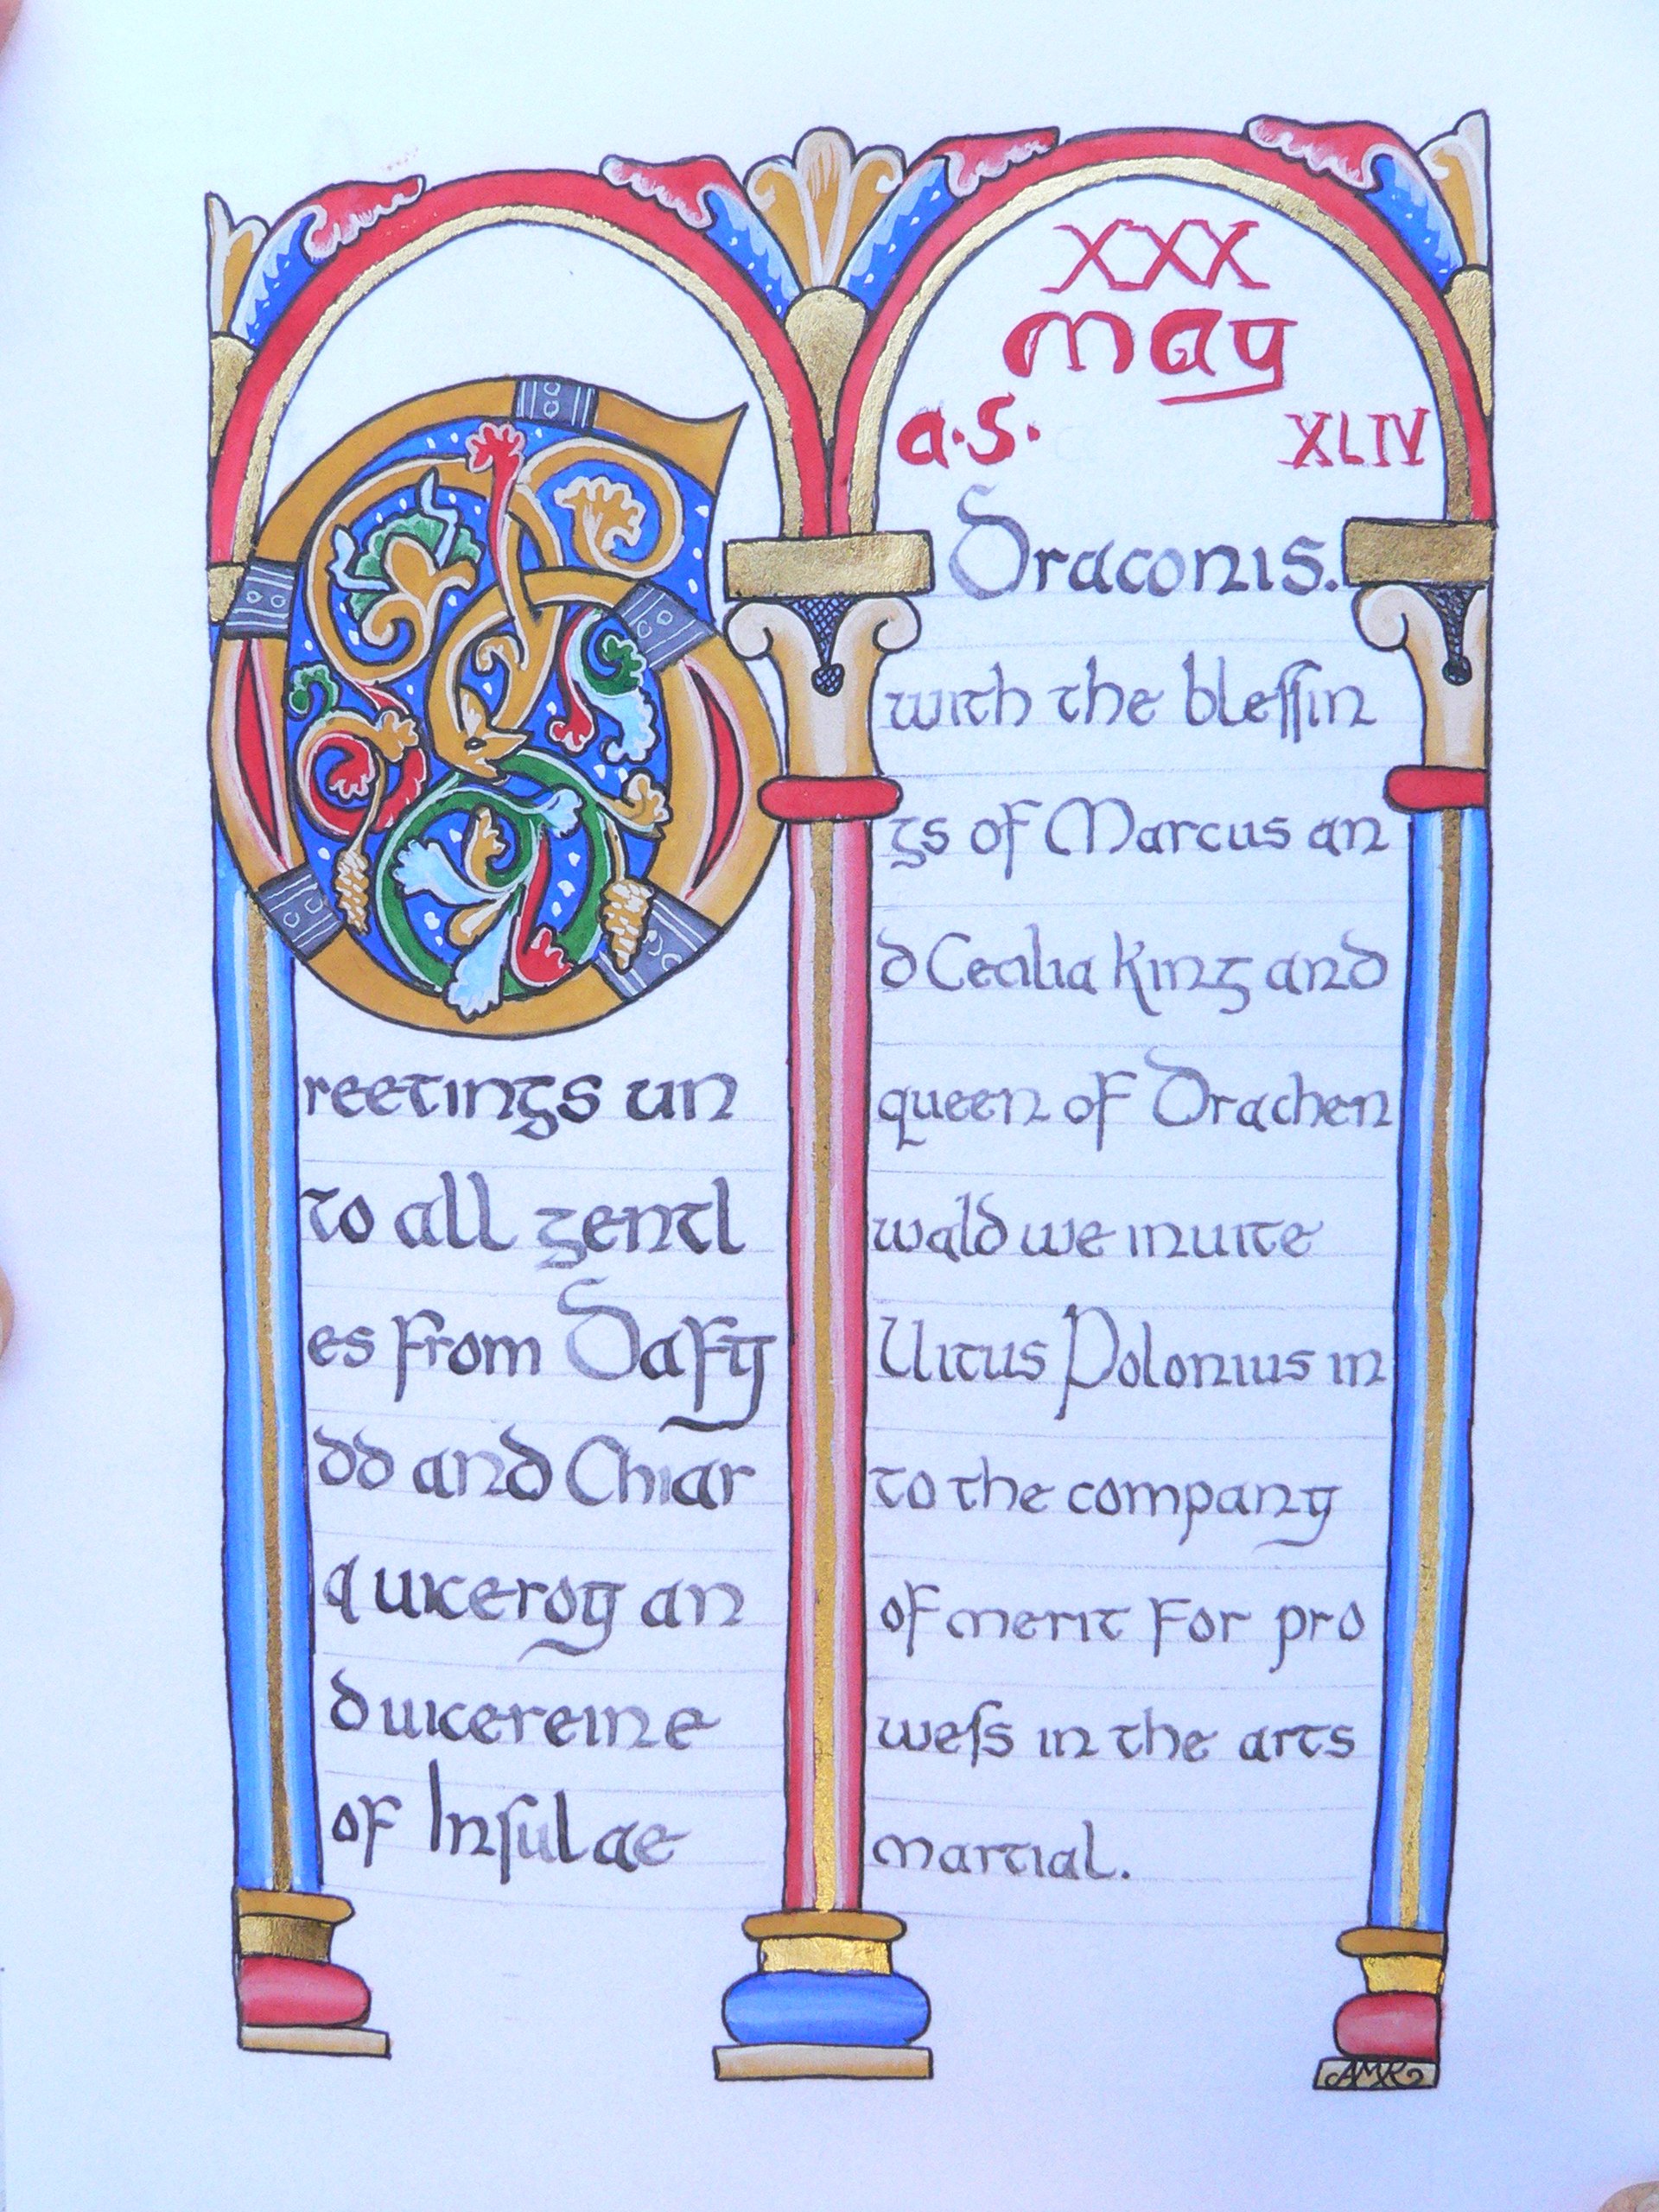 Greetings un
to all gentl
es from Dafy
dd and Chiar
a uiceroy an
d uicereine
of Inſulae
XXX
may
a.S. XLIV
Draconis.
with the bleſſin
gs of Marcus an
d Cecilia King and
queen of Drachen
wald we inuite
Uitus Polonius in
to the company
of merit for pro
weſs in the arts
martial.
AMR